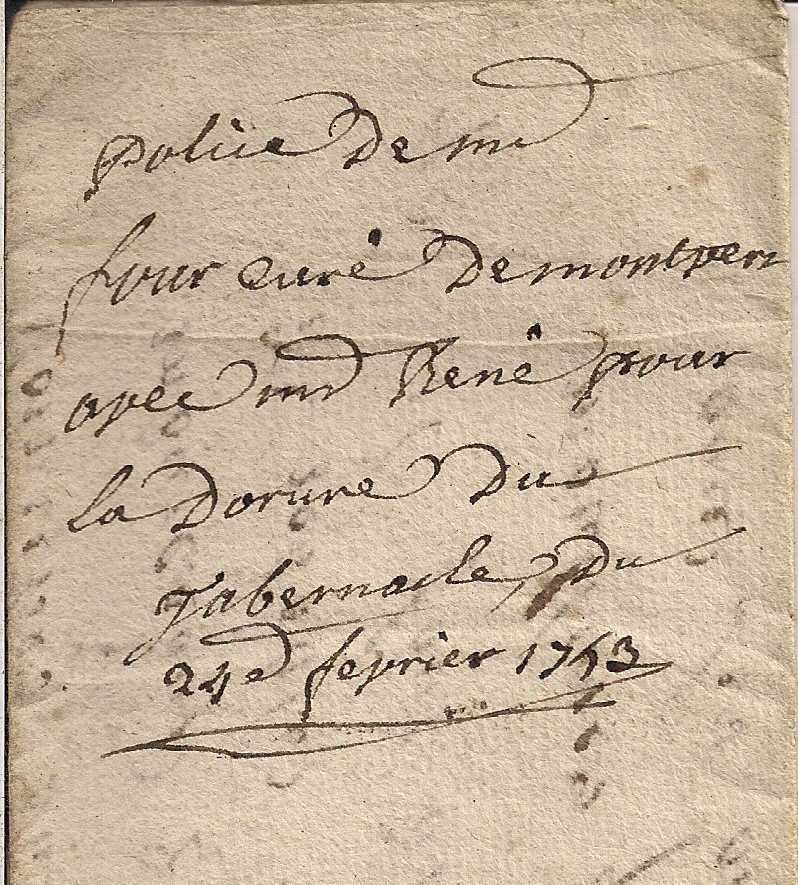 police De mr
four curé De montpen
avec mr René pour
la Dorure Du
Tabernacle, Du
24e fevrier 1753